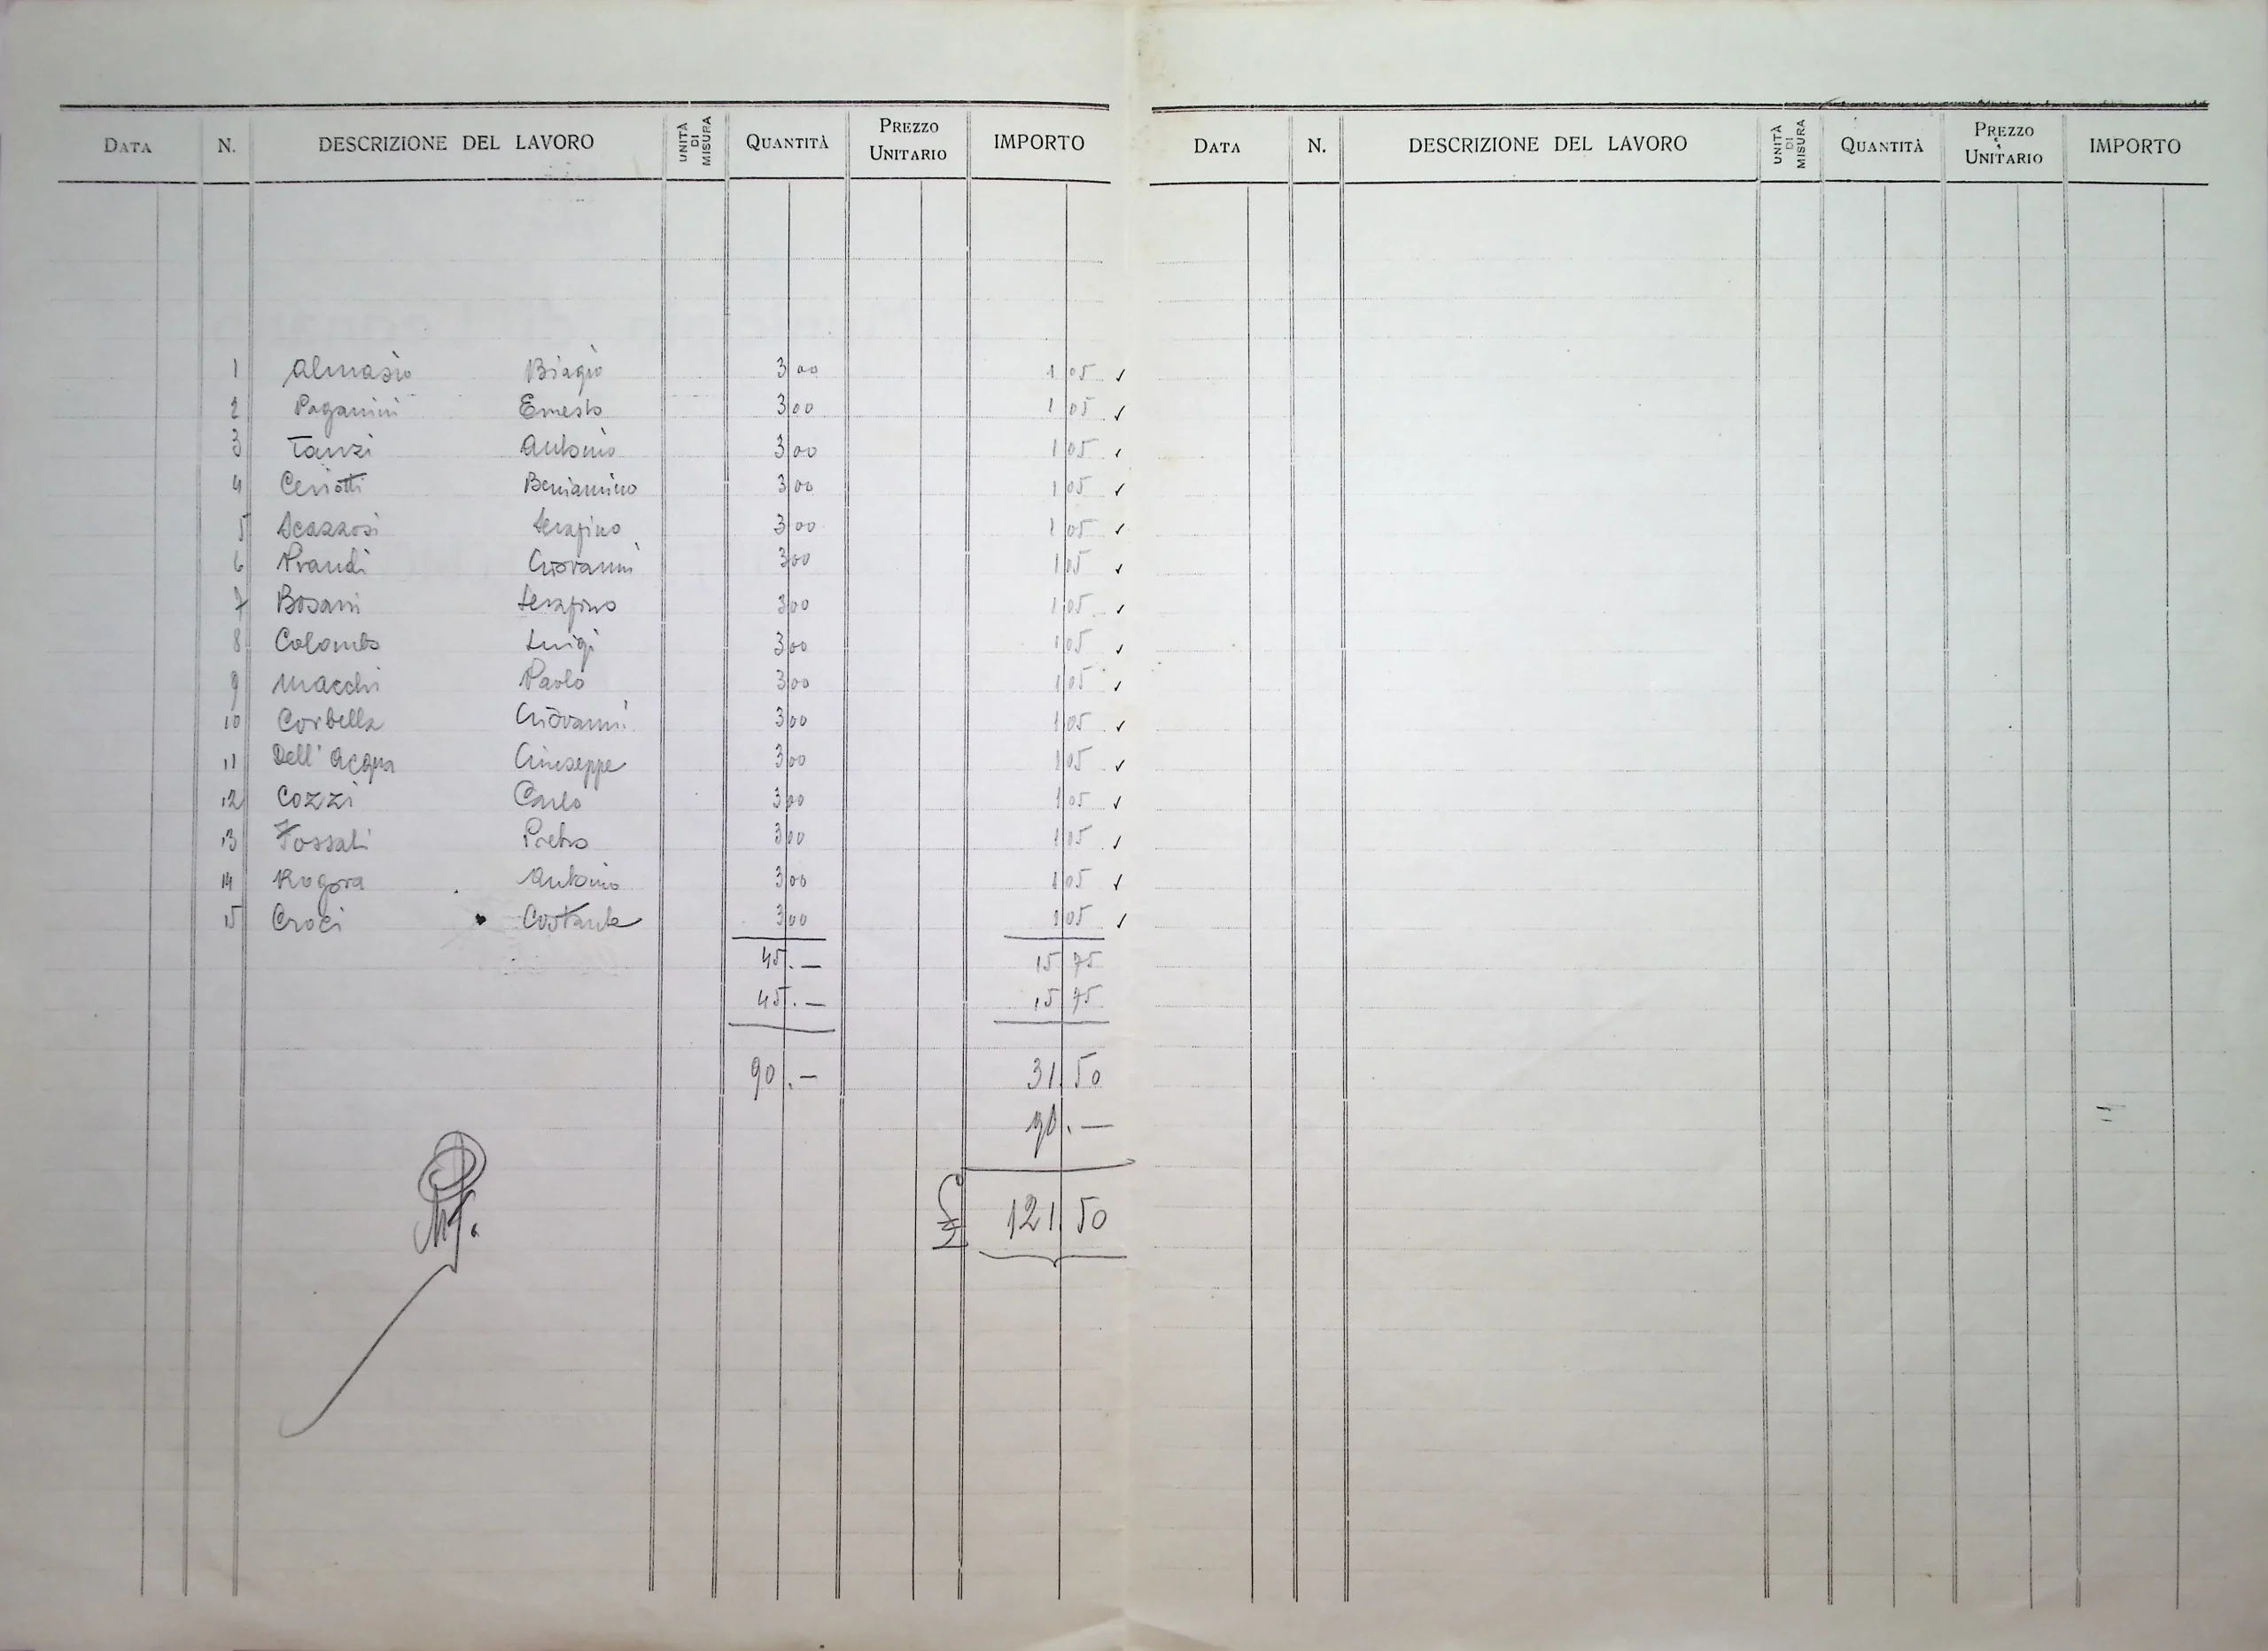 DATA N. DESCRIZIONE DEL LAVORO UNITÀ DI MISURA QUANTITÀ PREZZO UNITARIO IMPORTO
1 Almasio Biagio 3 00 1 05 ✓
2 Paganini Ernesto 3 00 1 05 ✓
3 Tanzi Antonio 3 00 1 05 ✓
4 Ceriotti Beniamino 3 00 1 05 ✓
5 Scazzosi Serafino 3 00 1 05 ✓
6 Prandi Giovanni 3 00 1 05 ✓
7 Bosani Serafino 3 00 1 05 ✓
8 Colombo Luigi 3 00 1 05 ✓
9 Macchi Paolo 3 00 1 05 ✓
10 Corbella Giovanni 3 00 1 05 ✓
11 Dell' Acqua Giuseppe 3 00 1 05 ✓
12 Cozzi Carlo 3 00 1 05 ✓
13 Fossati Pietro 3 00 1 05 ✓
14 Rogora Antonio 3 00 1 05 ✓
15 Croci Costante 3 00 1 05 ✓
45.— 15 75
45.— 15 75
90.— 31.50
90.—
£ 121.50
DATA N. DESCRIZIONE DEL LAVORO UNITÀ DI MISURA QUANTITÀ PREZZO UNITARIO IMPORTO